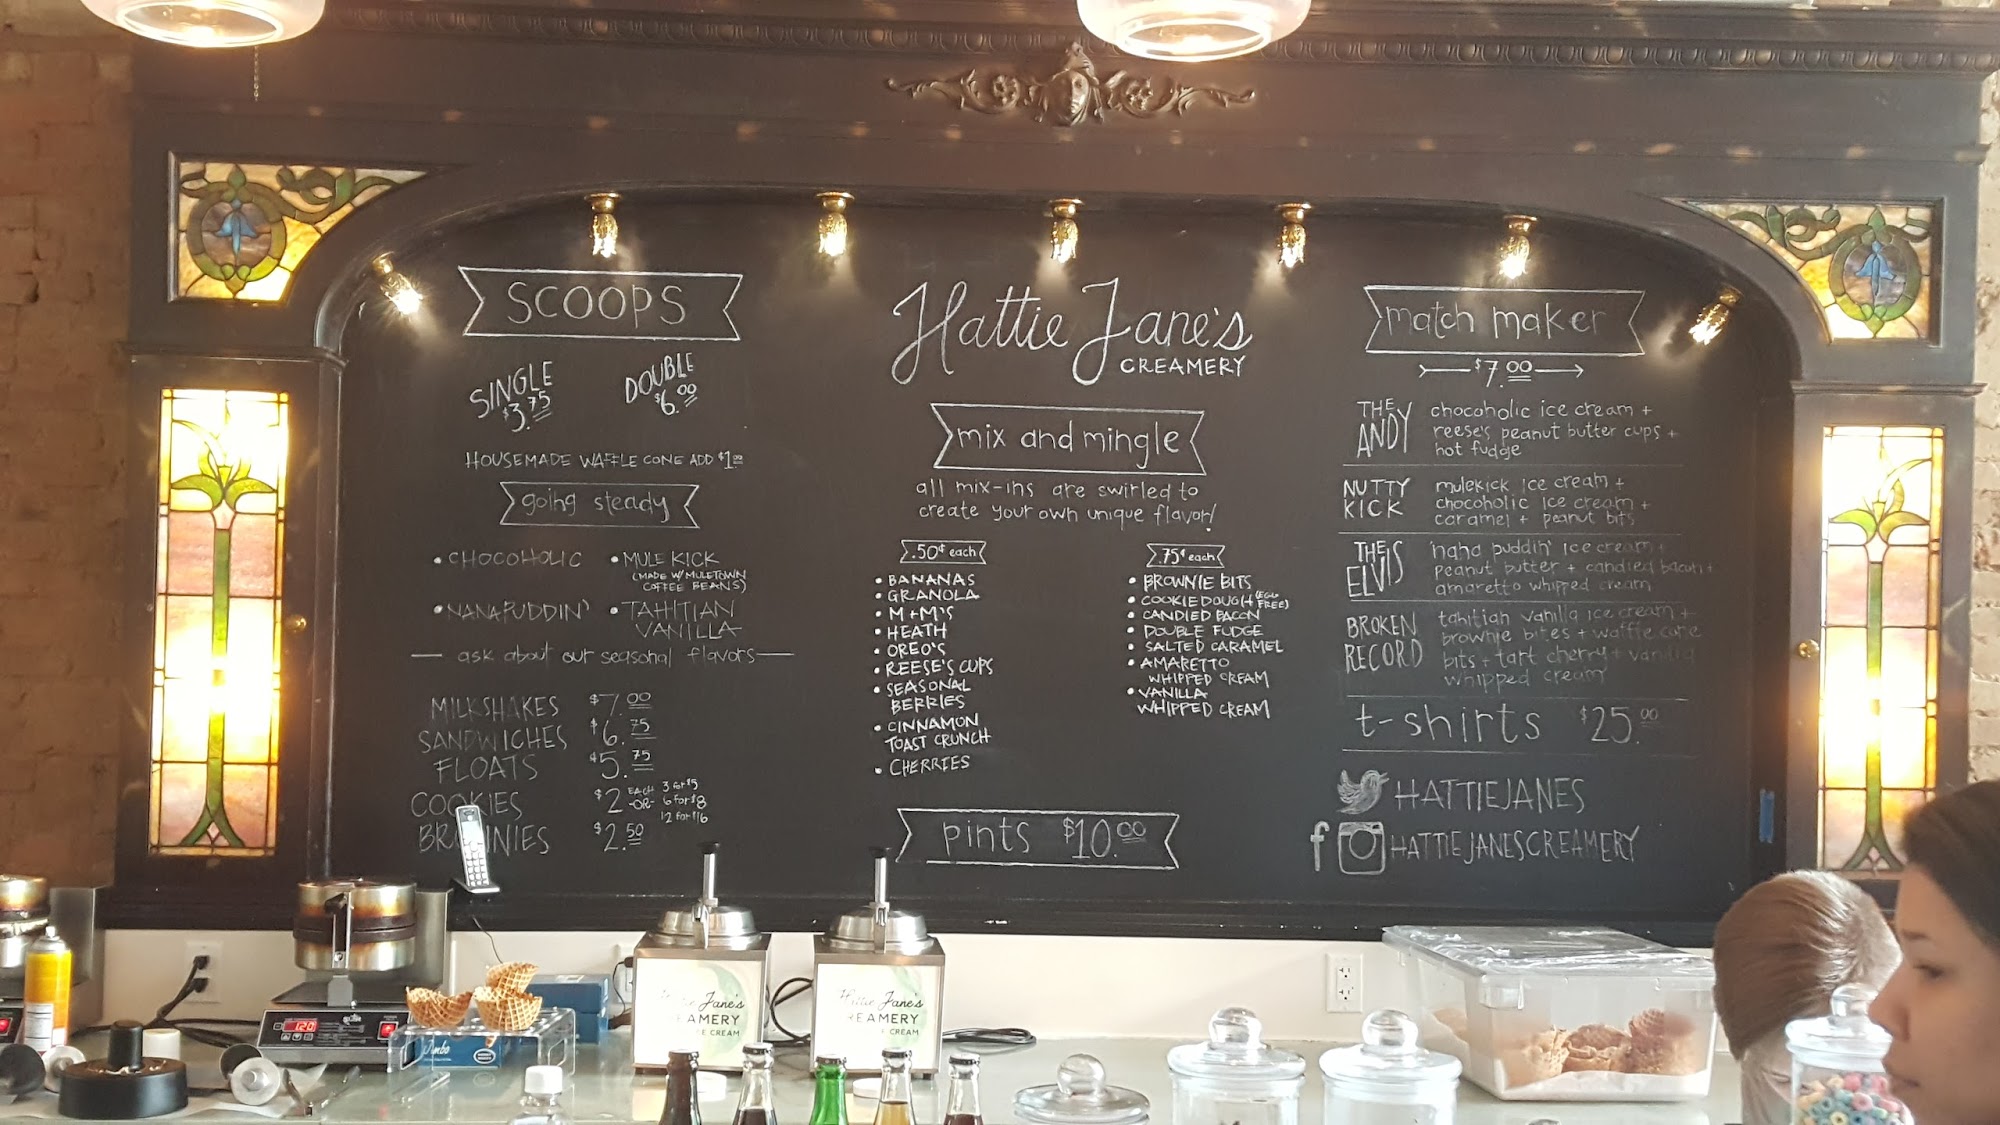 SCOOPS
SINGLE
$3.75
DOUBLE
$6.00
HOUSEMADE WAFFLE CONE ADD $1.00
going steady
• CHOCOHOLIC
• MULE KICK
(MADE W/ MULETOWN
COFFEE BEANS)
• 'NANA PUDDIN'
• TAHITIAN
VANILLA
ask about our seasonal flavors
MILKSHAKES $7.00
SANDWICHES $6.75
FLOATS $5.75
COOKIES $2 EACH -OR- 3 for $5
6 for $8
12 for $16
BROWNIES $2.50
Hattie Jane's
CREAMERY
mix and mingle
all mix-ins are swirled to
create your own unique flavor!
.50¢ each
• BANANAS
• GRANOLA
• M+M'S
• HEATH
• OREO'S
• REESE'S CUPS
• SEASONAL
BERRIES
• CINNAMON
TOAST CRUNCH
• CHERRIES
.75¢ each
• BROWNIE BITS
• COOKIE DOUGH (EGG
FREE)
• CANDIED BACON
• DOUBLE FUDGE
• SALTED CARAMEL
• AMARETTO
WHIPPED CREAM
• VANILLA
WHIPPED CREAM
pints $10.00
match maker
$7.00
THE
ANDY
chocoholic ice cream +
reese's peanut butter cups +
hot fudge
NUTTY
KICK
mulekick ice cream +
chocoholic ice cream +
caramel + peanut bits
THE
ELVIS
'nana puddin' ice cream +
peanut butter + candied bacon +
amaretto whipped cream
BROKEN
RECORD
tahitian vanilla ice cream +
brownie bites + waffle cone
bits + tart cherry + vanilla
whipped cream
t-shirts $25.00
HATTIEJANES
f HATTIEJANESCREAMERY
120
Jumbo
Jane's
EAMERY
CREAM
Hattie Jane's
REAMERY
CREAM